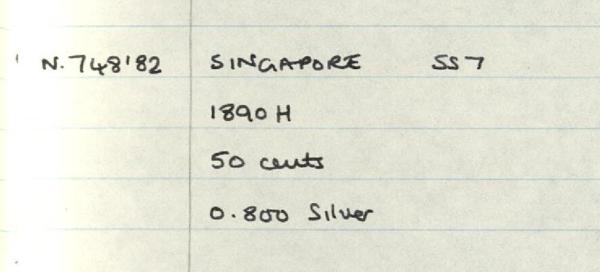 N.748'82 SINGAPORE SS7
1890H
50 cents
0.800 Silver